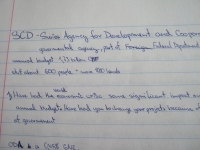 SCD - Swiss Agency for Development and Cooper
governmental agency, part of Federal Department
annual budget 1,73 billion
about 600 people
world
Have had the economic crisis some significant impact on
annual budget. Have had you to change your projects because of
of government
ODA is